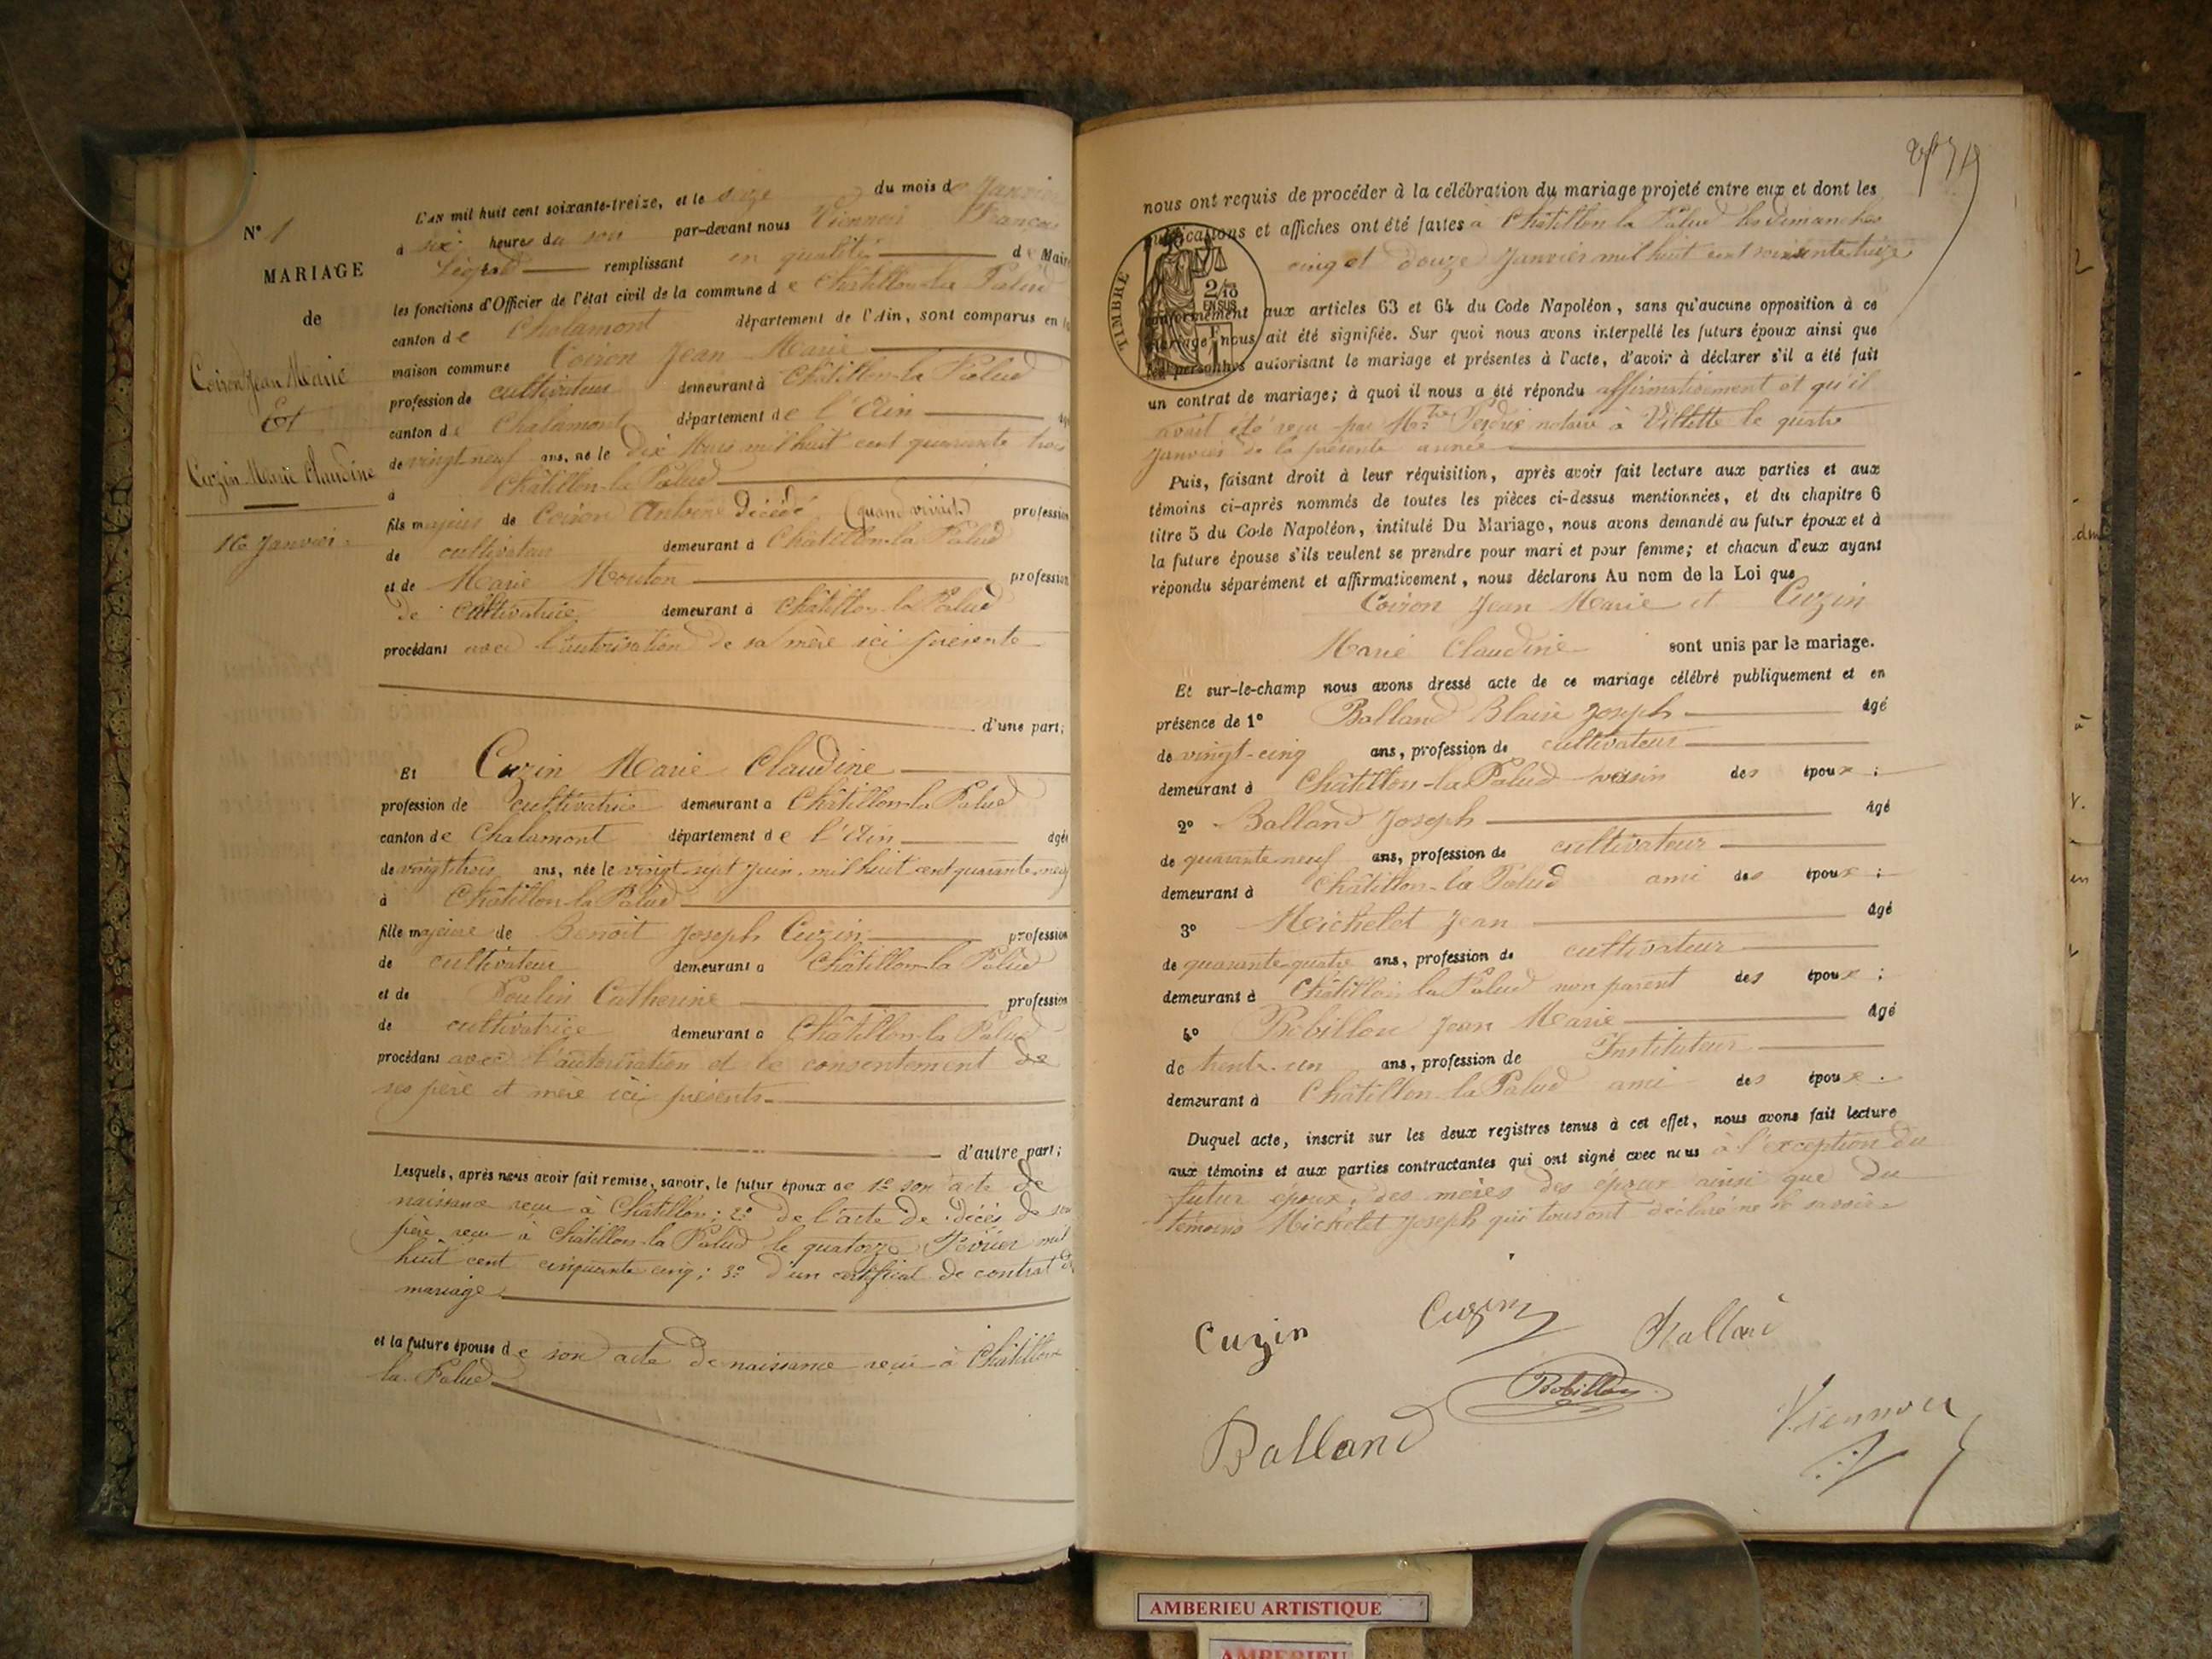 N° 1
MARIAGE
de
Coiron Jean Marie
Et
Cuzin Marie Claudine
16 Janvier.
L'AN mil huit cent soixante-treize, et le seize du mois de Janvier
à six heures du soir par-devant nous Viennois François
remplissant en qualité de Maire
les fonctions d'Officier de l'état civil de la commune de Châtillon-la Palud
canton de Chalamont département de l'Ain, sont comparus en la
maison commune Coiron Jean Marie
profession de cultivateur demeurant à Châtillon-la Palud
canton de Chalamont département de l'Ain âgé
de vingt-neuf ans, né le dix Mars mil huit cent quarante trois
à Châtillon-la Palud
fils majeur de Coiron Antoine décédé (quand vivait) profession
de cultivateur demeurant à Châtillon-la Palud
et de Marie Mouton profession
de cultivatrice demeurant à Châtillon-la Palud
procédant avec l'autorisation de sa mère ici présente
d'une part;
Et Cuzin Marie Claudine
profession de cultivatrice demeurant à Châtillon-la Palud
canton de Chalamont département de l'Ain âgée
de vingt trois ans, née le vingt-sept Juin mil huit cent quarante-neuf
à Châtillon-la Palud
fille majeure de Benoît Joseph Cuzin profession
de cultivateur demeurant à Châtillon-la Palud
et de Poulin Catherine profession
de cultivatrice demeurant à Châtillon-la Palud
procédant avec l'autorisation et le consentement de
ses père et mère ici présents
d'autre part;
Lesquels, après nous avoir fait remise, savoir, le futur époux de 1° son acte de
naissance reçu à Châtillon; 2° de l'acte de décès de son
père reçu à Châtillon-la Palud le quatorze Février mil
huit cent cinquante cinq; 3° d'un certificat de contrat de
mariage
et la future épouse de son acte de naissance reçu à Châtillon
la Palud
nous ont requis de procéder à la célébration du mariage projeté entre eux et dont les
publications et affiches ont été faites à Châtillon la Palud les dimanches
cinq et douze Janvier mil huit cent soixante treize
TIMBRE
2/10
EN SUS
conformément aux articles 63 et 64 du Code Napoléon, sans qu'aucune opposition à ce
mariage nous ait été signifiée. Sur quoi nous avons interpellé les futurs époux ainsi que
les personnes autorisant le mariage et présentes à l'acte, d'avoir à déclarer s'il a été fait
un contrat de mariage; à quoi il nous a été répondu affirmativement et qu'il
avait été reçu par notaire à Villette le quatre
Janvier de la présente année
Puis, faisant droit à leur réquisition, après avoir fait lecture aux parties et aux
témoins ci-après nommés de toutes les pièces ci-dessus mentionnées, et du chapitre 6
titre 5 du Code Napoléon, intitulé Du Mariage, nous avons demandé au futur époux et à
la future épouse s'ils veulent se prendre pour mari et pour femme; et chacun d'eux ayant
répondu séparément et affirmativement, nous déclarons Au nom de la Loi que
Coiron Jean Marie et Cuzin
Marie Claudine sont unis par le mariage.
Et sur-le-champ nous avons dressé acte de ce mariage célébré publiquement et en
présence de 1° Balland Blaise Joseph âgé
de vingt-cinq ans, profession de cultivateur
demeurant à Châtillon-la Palud voisin des époux;
2° Balland Joseph âgé
de quarante neuf ans, profession de cultivateur
demeurant à Châtillon-la Palud ami des époux;
3° Michelet Jean âgé
de quarante-quatre ans, profession de cultivateur
demeurant à Châtillon la Palud non parent des époux;
4° Robillon Jean Marie âgé
de trente-un ans, profession de Instituteur
demeurant à Châtillon-la Palud ami des époux.
Duquel acte, inscrit sur les deux registres tenus à cet effet, nous avons fait lecture
aux témoins et aux parties contractantes qui ont signé avec nous à l'exception du
futur époux, des mères des époux ainsi que du
témoins Michelet Joseph qui tous ont déclaré ne le savoir
Cuzin
Cuzin
Balland
Robillon
Balland
Viennois
AMBERIEU ARTISTIQUE
AMBERIEU